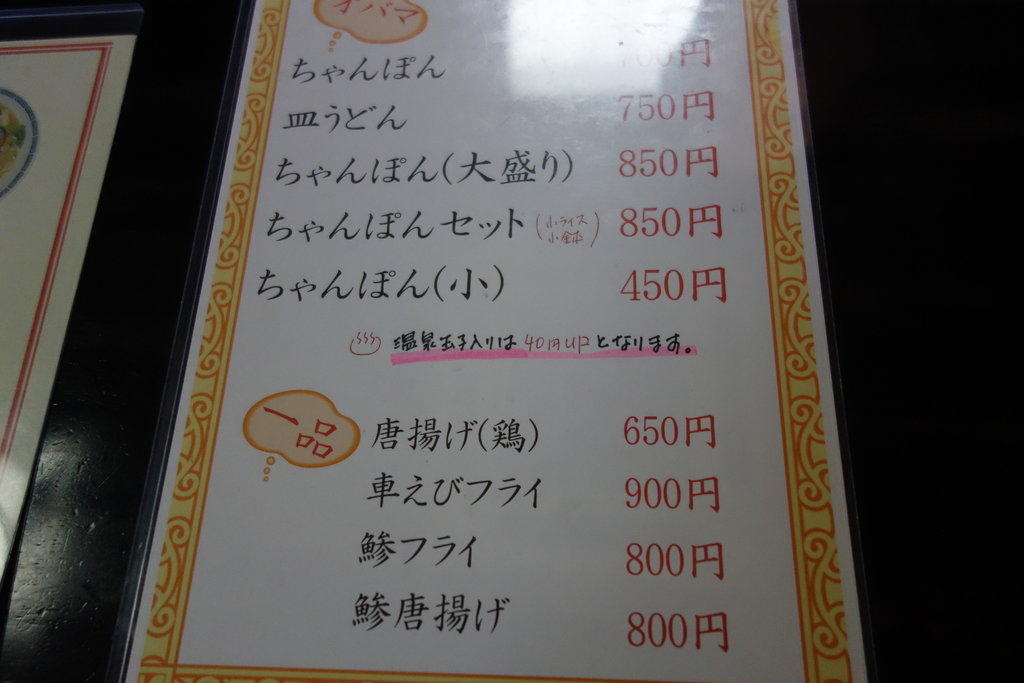 オバマ
ちゃんぽん 700円
皿うどん 750円
ちゃんぽん(大盛り) 850円
ちゃんぽんセット(小ライス 小鉢) 850円
ちゃんぽん(小) 450円
温泉玉子入りは40円UPとなります。
一品
唐揚げ(鶏) 650円
車えびフライ 900円
鯵フライ 800円
鯵唐揚げ 800円